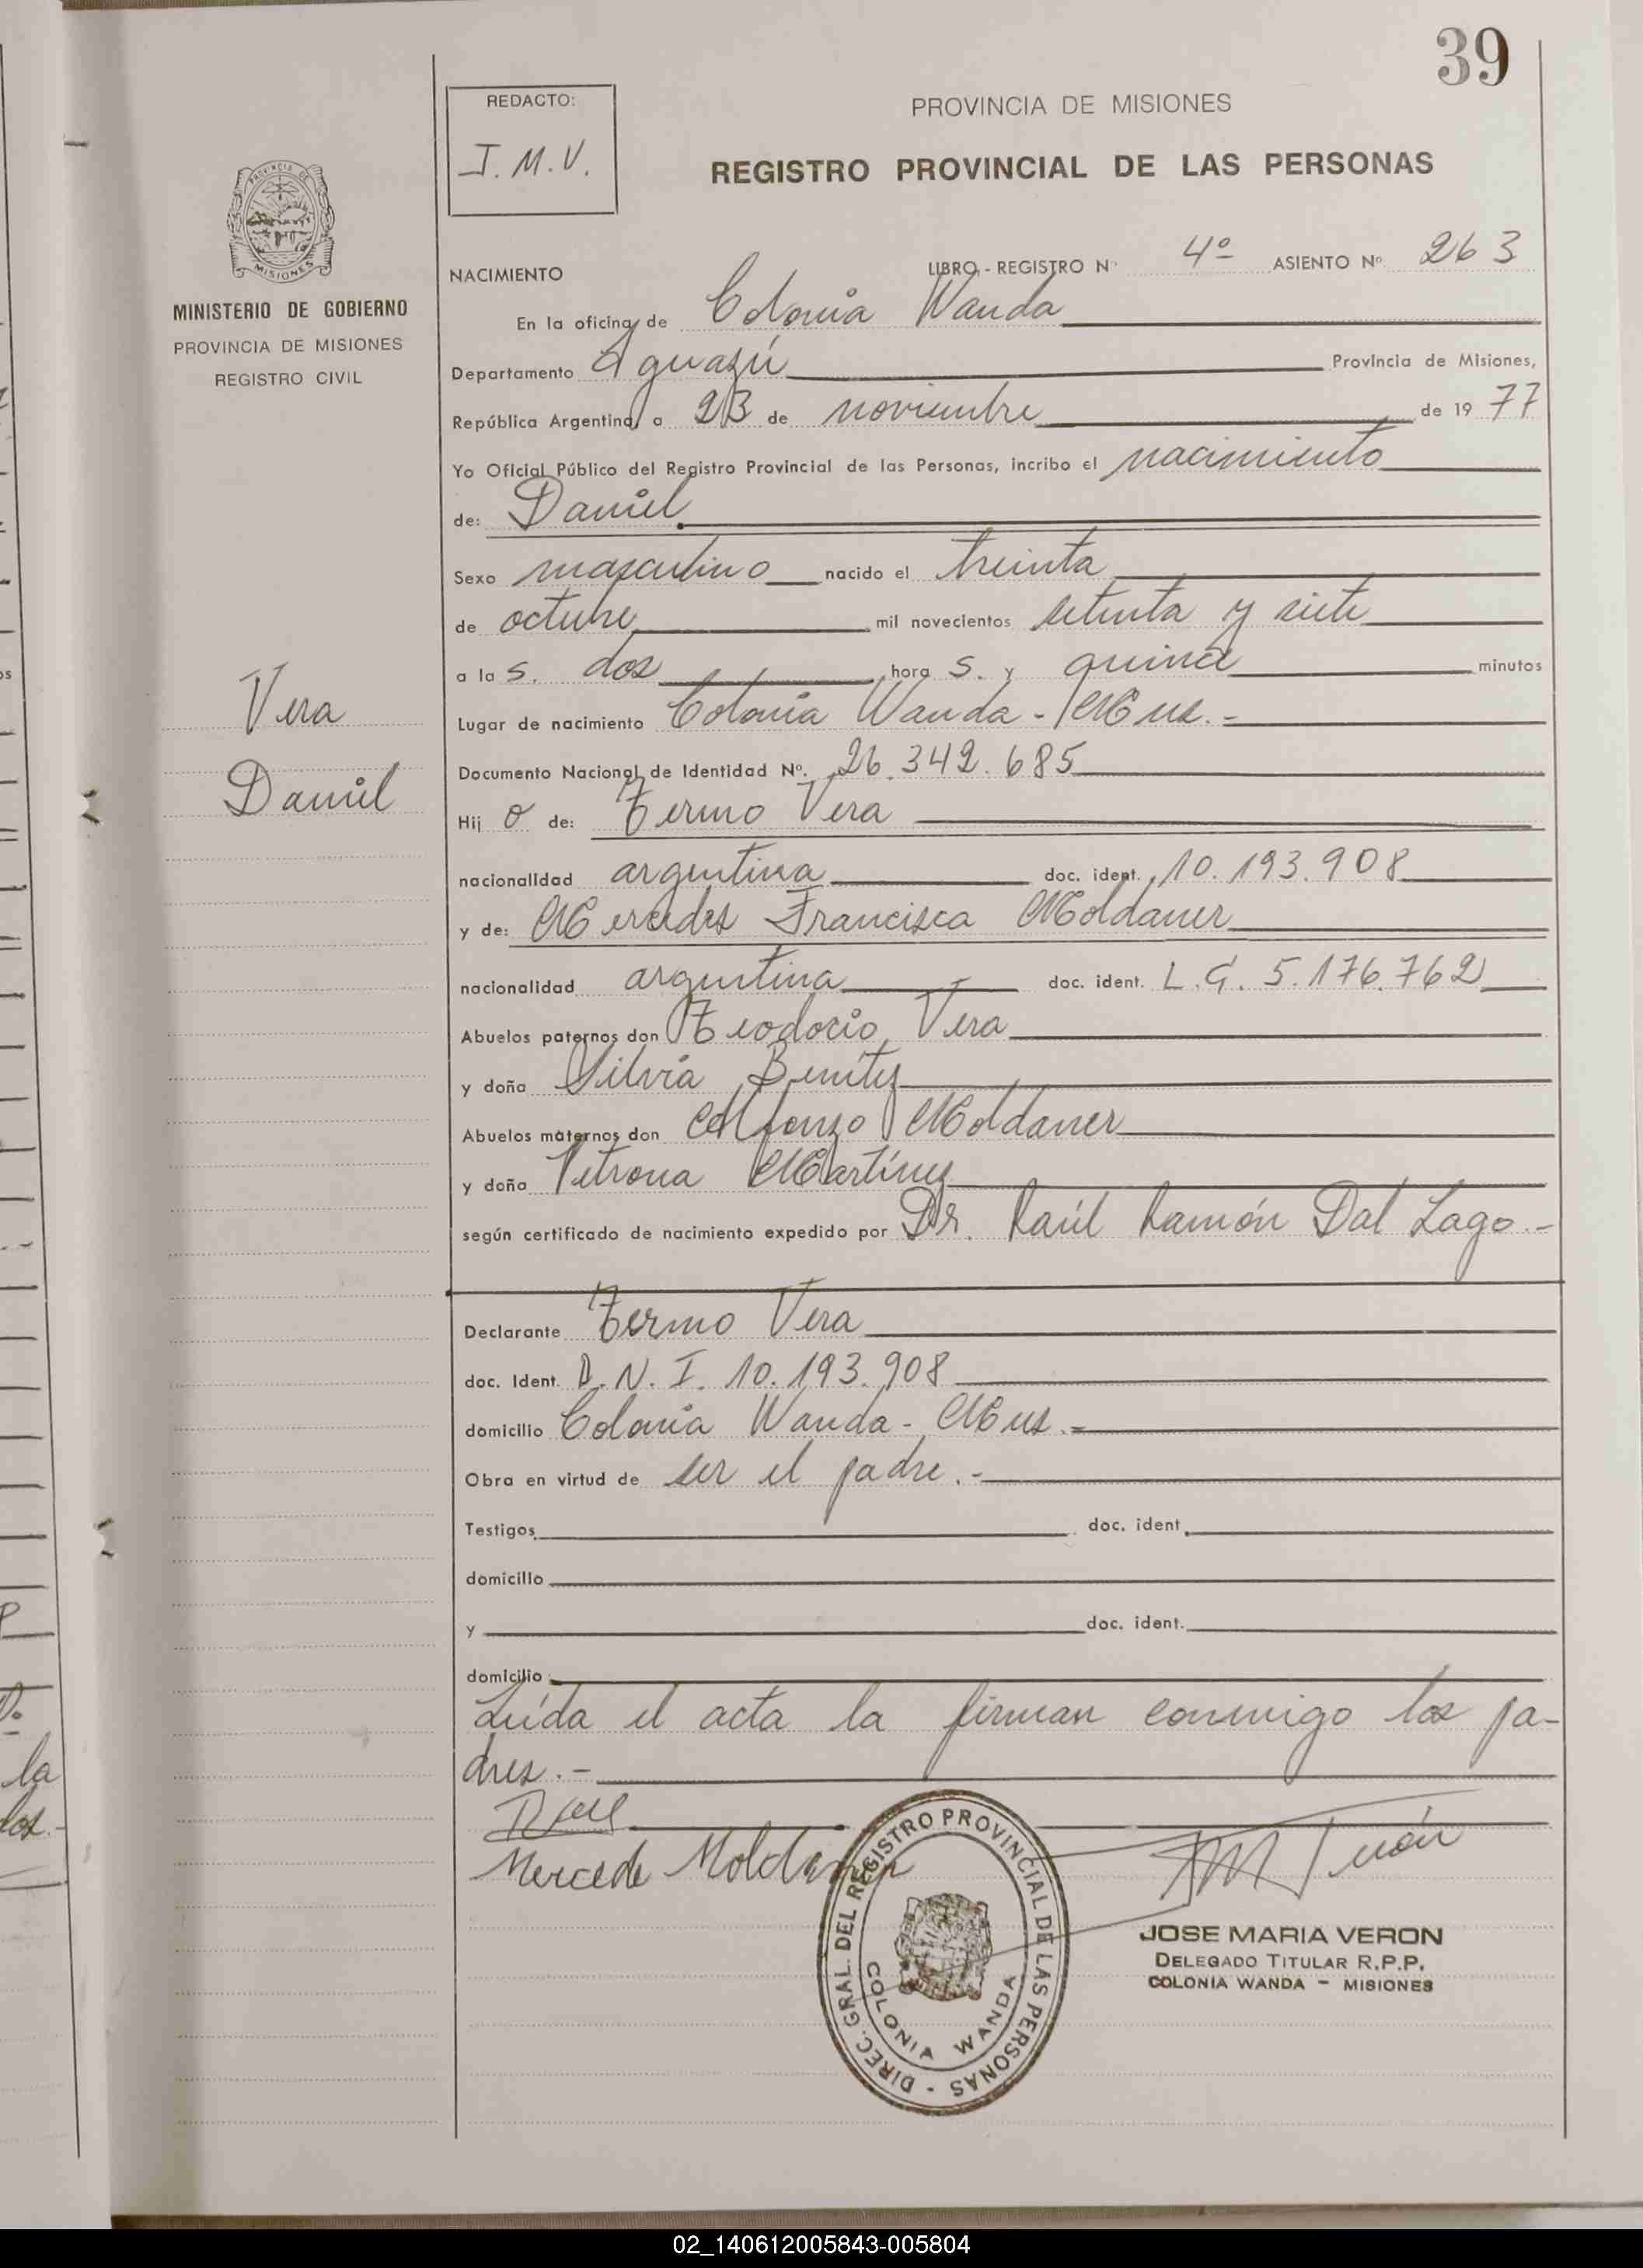 39
REDACTO:
J. M. V.
PROVINCIA DE MISIONES
REGISTRO PROVINCIAL DE LAS PERSONAS
PROVINCIA DE MISIONES
MINISTERIO DE GOBIERNO
PROVINCIA DE MISIONES
REGISTRO CIVIL
Vera
Daniel
NACIMIENTO LIBRO - REGISTRO Nº 4º ASIENTO Nº 263
En la oficina de Colonia Wanda
Departamento Iguazú Provincia de Misiones,
República Argentina, a 23 de noviembre de 1977
Yo Oficial Público del Registro Provincial de las Personas, incribo el nacimiento
de: Daniel
Sexo masculino nacido el treinta
de octubre mil novecientos setenta y siete
a la s. dos hora s. y quince minutos
Lugar de nacimiento Colonia Wanda - Mnes. -
Documento Nacional de Identidad Nº. 26.342.685
Hij o de: Fermo Vera
nacionalidad argentina doc. ident. 10.193.908
y de: Mercedes Francisca Moldaner
nacionalidad argentina doc. ident. L.C. 5.176.762
Abuelos paternos don Teodocio Vera
y doña Silvia Benítez
Abuelos maternos don Alfonzo Moldaner
y doña Petrona Martínez
según certificado de nacimiento expedido por Dr. Raúl Ramón Dal Lago. -
Declarante Fermo Vera
doc. Ident. D.N.I. 10.193.908
domicilio Colonia Wanda - Mnes. -
Obra en virtud de ser el padre. -
Testigos doc. ident.
domicilio
y doc. ident.
domicilio
Leída el acta la firman conmigo los pa-
dres. -
Mercede Moldaner
DIREC. GRAL. DEL REGISTRO PROVINCIAL DE LAS PERSONAS -
COLONIA WANDA
JOSE MARIA VERON
DELEGADO TITULAR R.P.P.
COLONIA WANDA - MISIONES
la
los. -
02_140612005843-005804